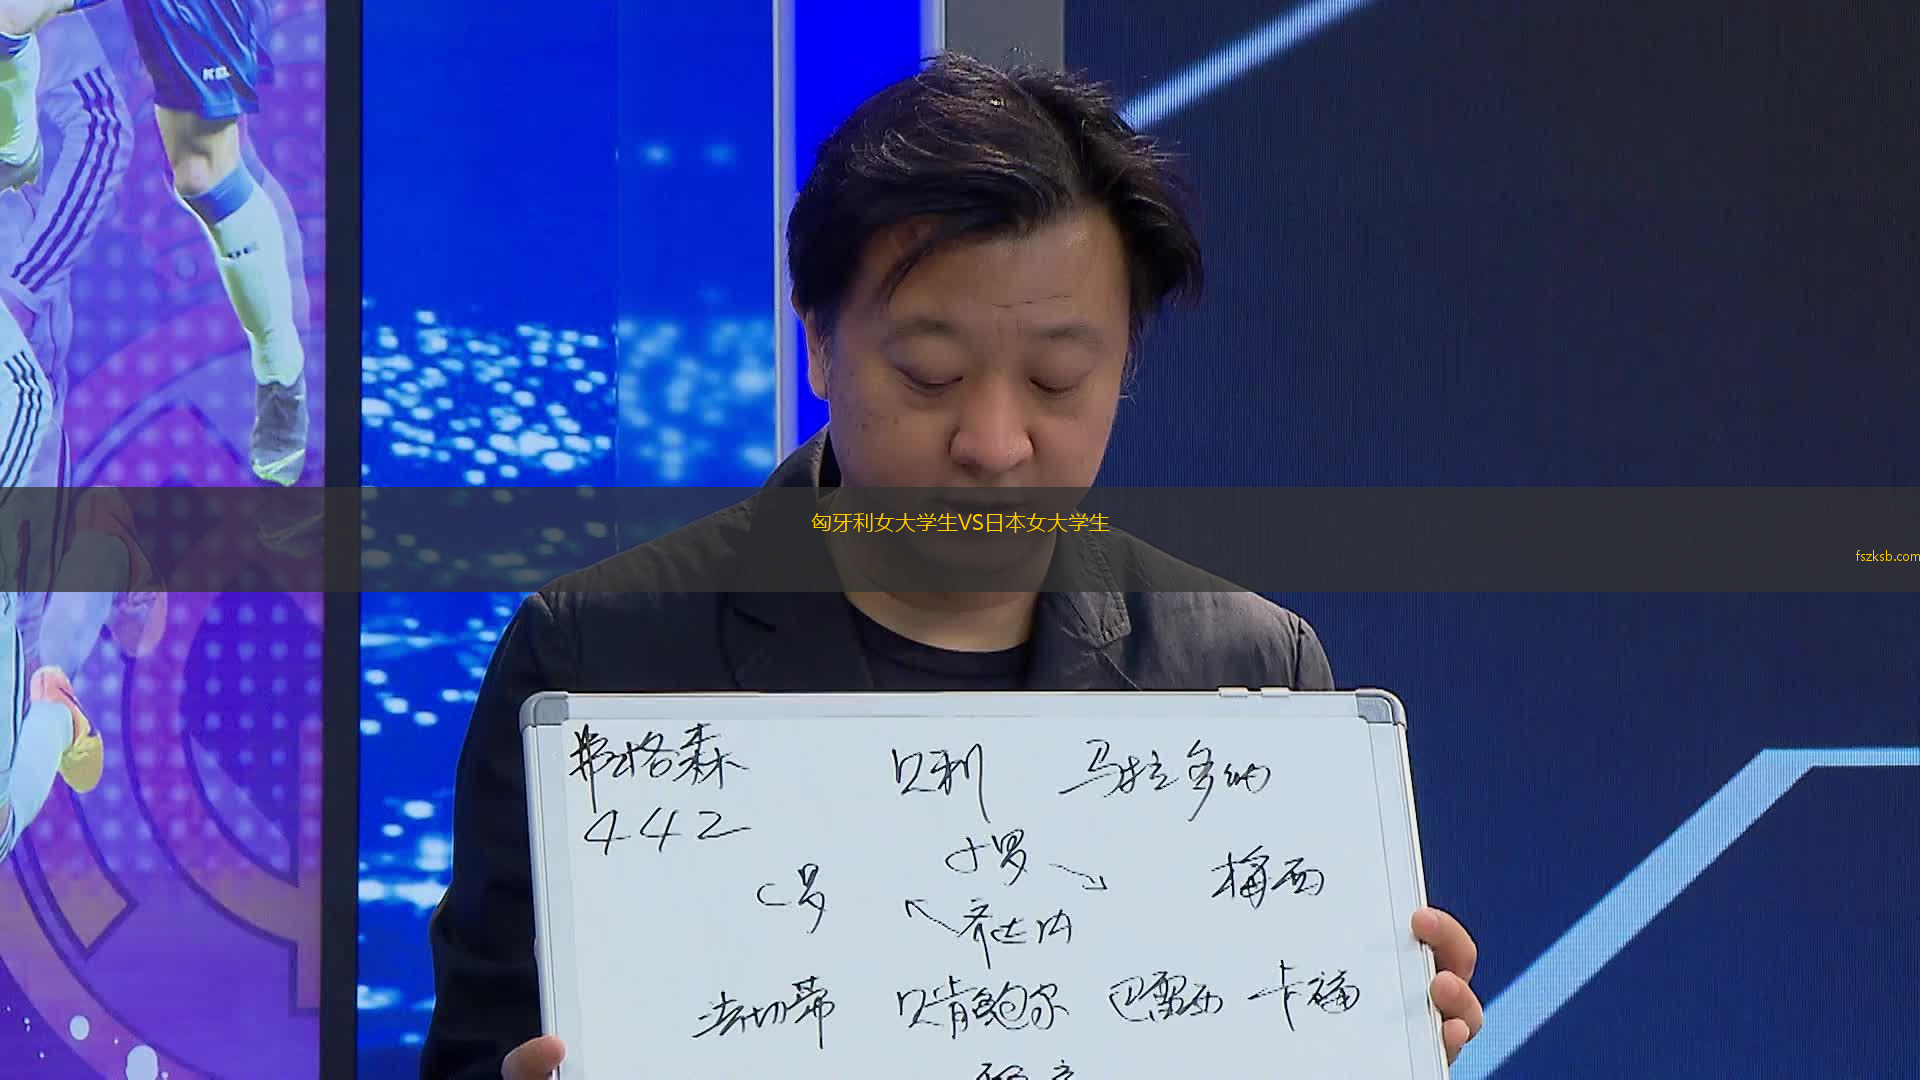 KEL
匈牙利女大学生VS日本女大学生
fszksb.com
弗格森 贝利 马拉多纳
442
小罗
C罗 梅西
齐达内
法切蒂 贝肯鲍尔 巴雷西 卡福